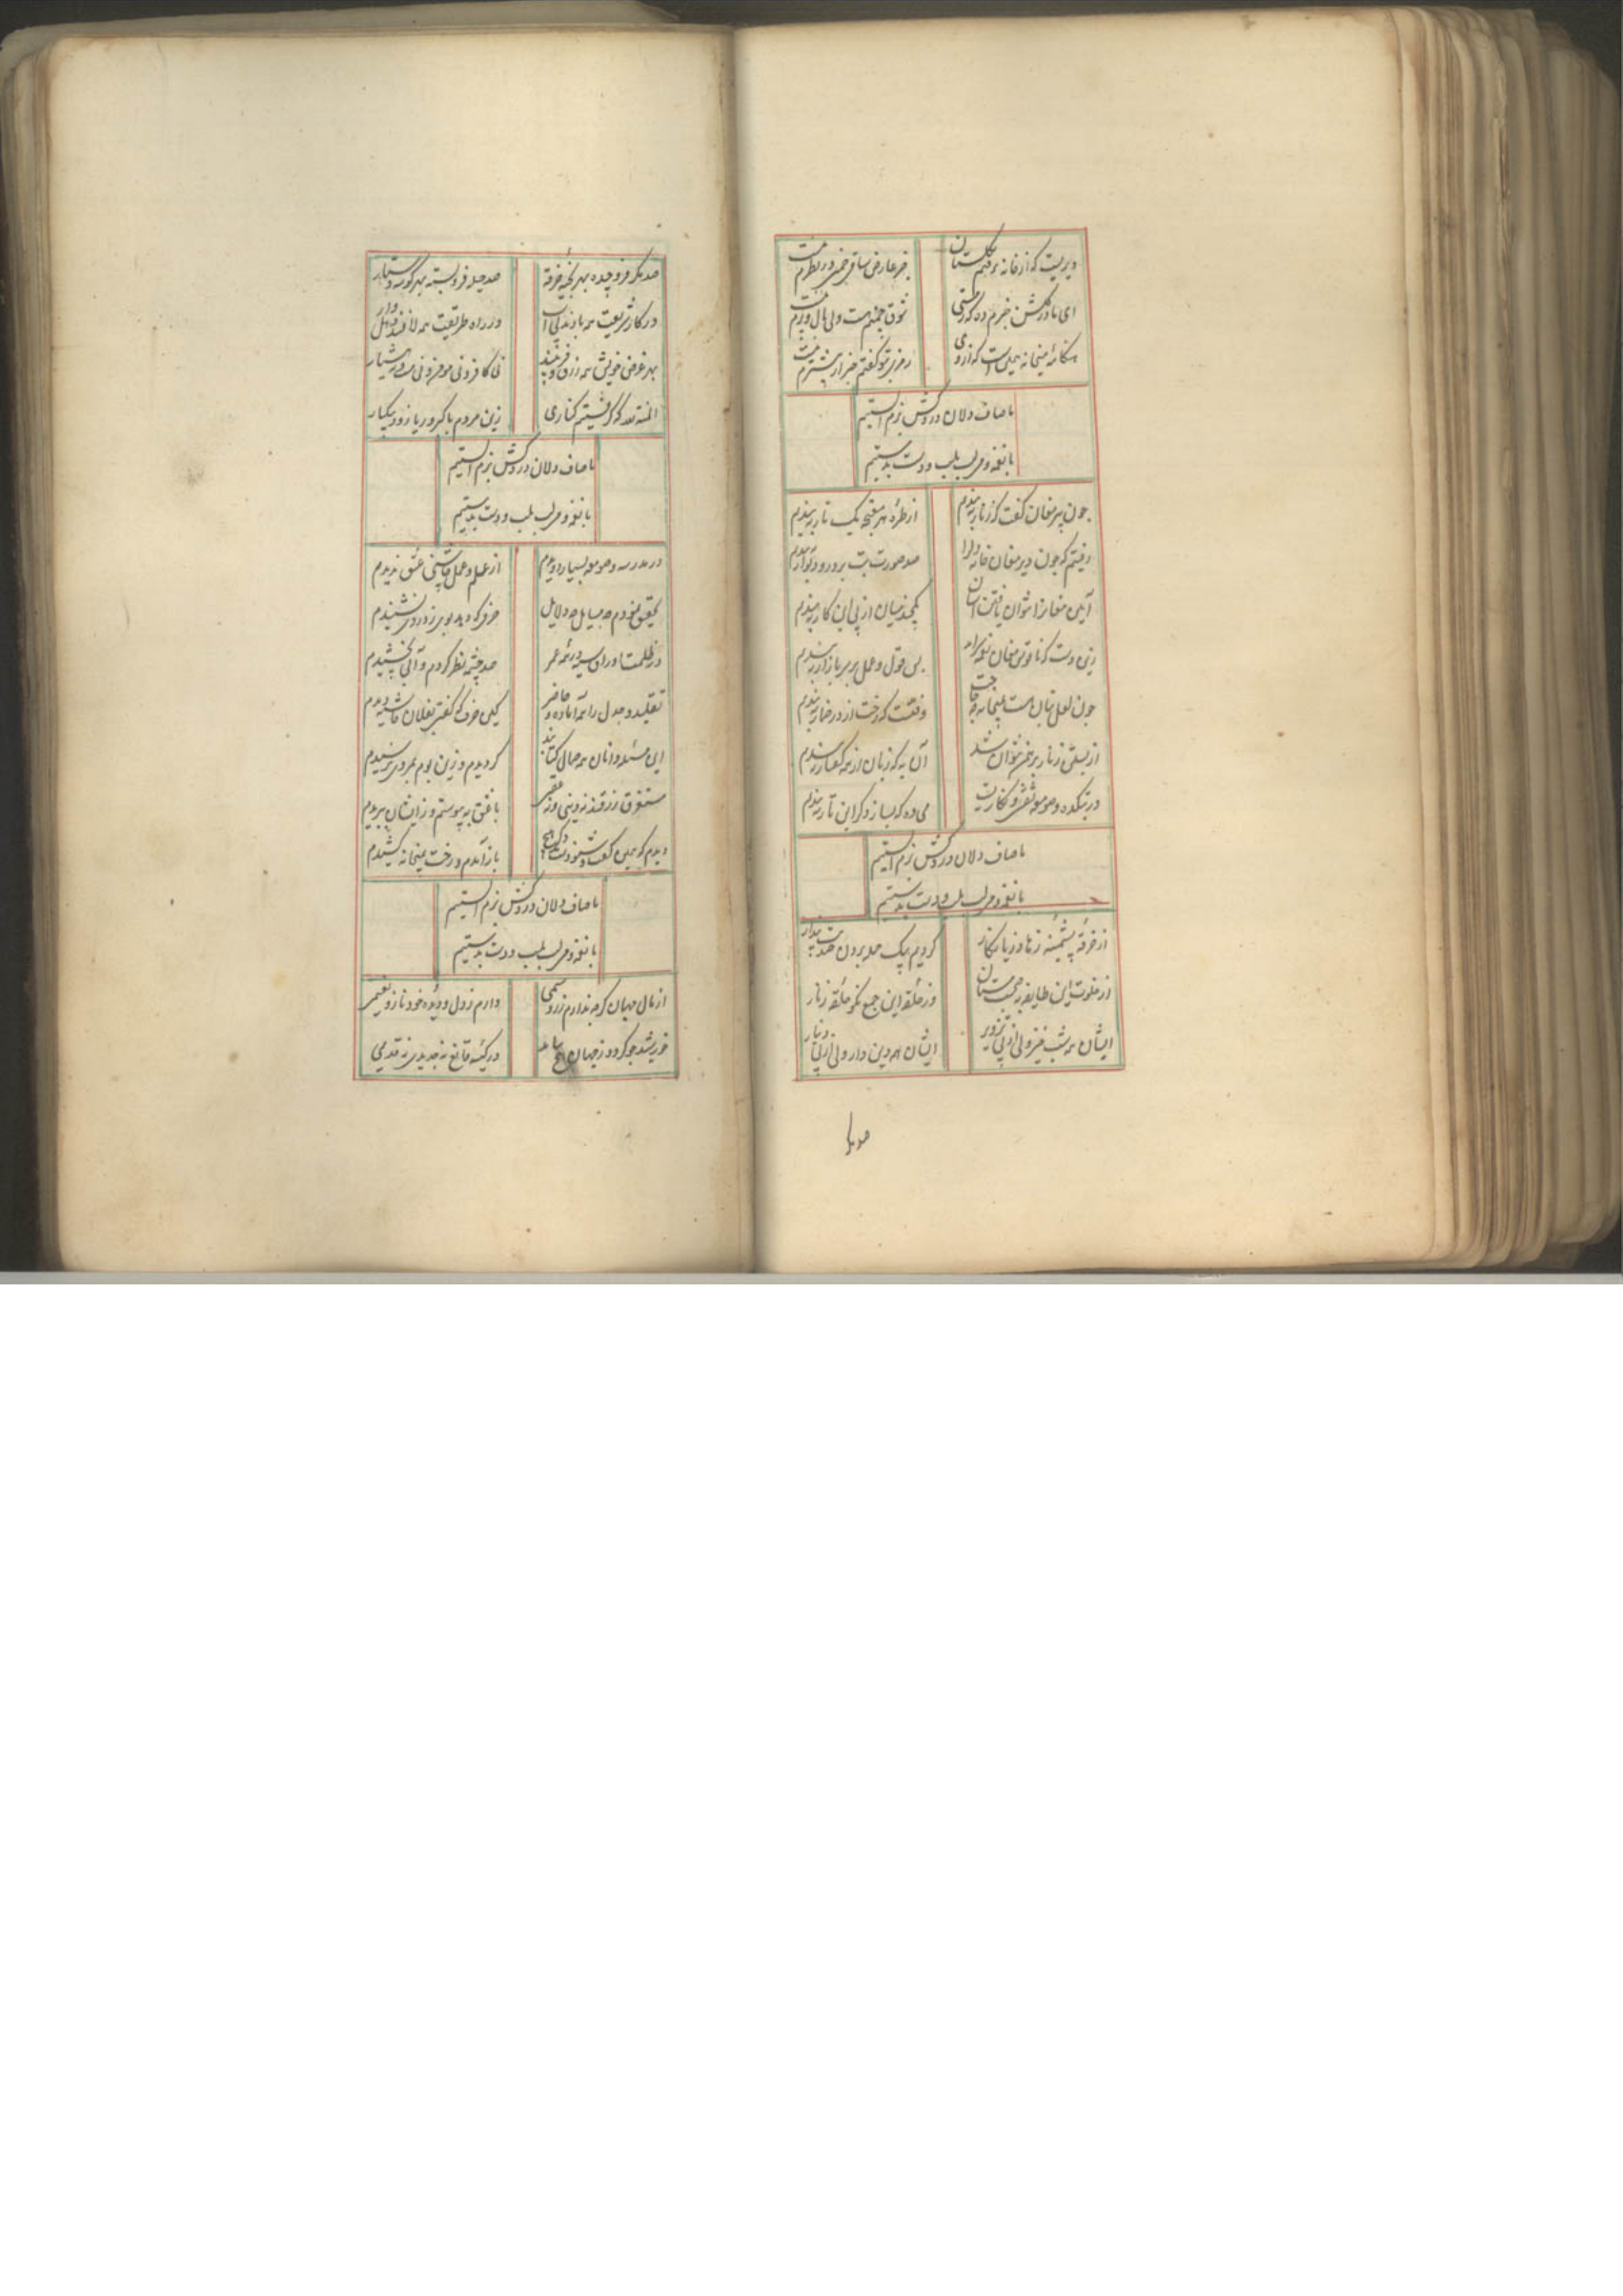 دیریست که از خانه نرفتم به گلستان
جز عارض ساقی چمنی در نظرم نیست
ای باد ز گلشن خبرم ده که ز مستی
شوق چمنم هست ولی بال و پرم نیست
هنگامه میخانه همین است که از وی
رمزی بتو گفتم خبر از بیشترم نیست
ما صاف دلان دردکش بزم الستیم
با نغمه و می لب بلب و دست بدستیم
چون پیر مغان گفت که زنار ببندم
از طره هر مغبچه یک تار ببندم
رفتم که چون دیر مغان خانه دل را
صد صورت بت بر در و دیوار ببندم
آیین مغان را نتوان یافتن آسان
یکچند میان از پی این کار ببندم
زین دست که ناقوس مغان نغمه سراید
بس قول و عمل بر سر بازار ببندم
چون لعل بتان هست بمیخانه چه حاجت
وقتست که رخت از در خمار ببندم
از بستن زنار برهمن نتوان شد
آن به که زبان از همه گفتار ببندم
در بتکده و صومعه نقش و نگاریست
می ده که بساز دگر این تار ببندم
ما صاف دلان دردکش بزم الستیم
با نغمه و می لب بلب و دست بدستیم
از خرقه پشمینه زهاد زیانکار
کردیم بیک حمله برون صد بت پندار
از خلوت این طایفه به مجلس مستان
وز حلقه این جمع نکو حلقه زنار
ایشان همه شب خیز ولی از پی تزویر
ایشان همه دین دار ولی از پی دینار
صد مکر
صد مکر فرو چیده بهر بخیه خرقه
صد حیله فرو بسته بهر گوشه دستار
در کار شریعت همه بادند
در راه طریقت همه لافند
بهر غرض خویش همه رزق فروشند
نی کافر ونی مؤمن ونی مست و نه هشیار
المنة لله که گرفتیم کناری
زین مردم با مکر و ریا زود بیکبار
ما صاف دلان دردکش بزم الستیم
با نغمه و می لب بلب و دست بدستیم
در مدرسه و صومعه بسیار دویدم
از علم و عمل چاشنی عشق ندیدم
تحقیق نمودم چه مسایل چه دلایل
حرفی که دهد بوی ز دردی نشنیدم
در ظلمت اوراق سیه در همه عمر
صد چشمه نظر کردم و آبی نچشیدم
تقلید و جدل را همه آماده و حاضر
کین حرف که گفت
این مسئله دانان همه حمال کتابند
گردیدم و زین بوم بمردی نرسیدم
مستغرق رزقند نه دینی و نه فقر
با عشق به پیوستم و ز ایشان ببریدم
دیدم که همین گفت و شنودست و دگر هیچ
باز آمدم و رخت بمیخانه کشیدم
ما صاف دلان دردکش بزم الستیم
با نغمه و می لب بلب و دست بدستیم
از مال جهان گرچه ندارم زر و سیمی
دارم ز دل و دیده خود ناز و نعیمی
خورشید چو گردد ز جهان
در کیسه قانع نه جدیدی نه قدیمی